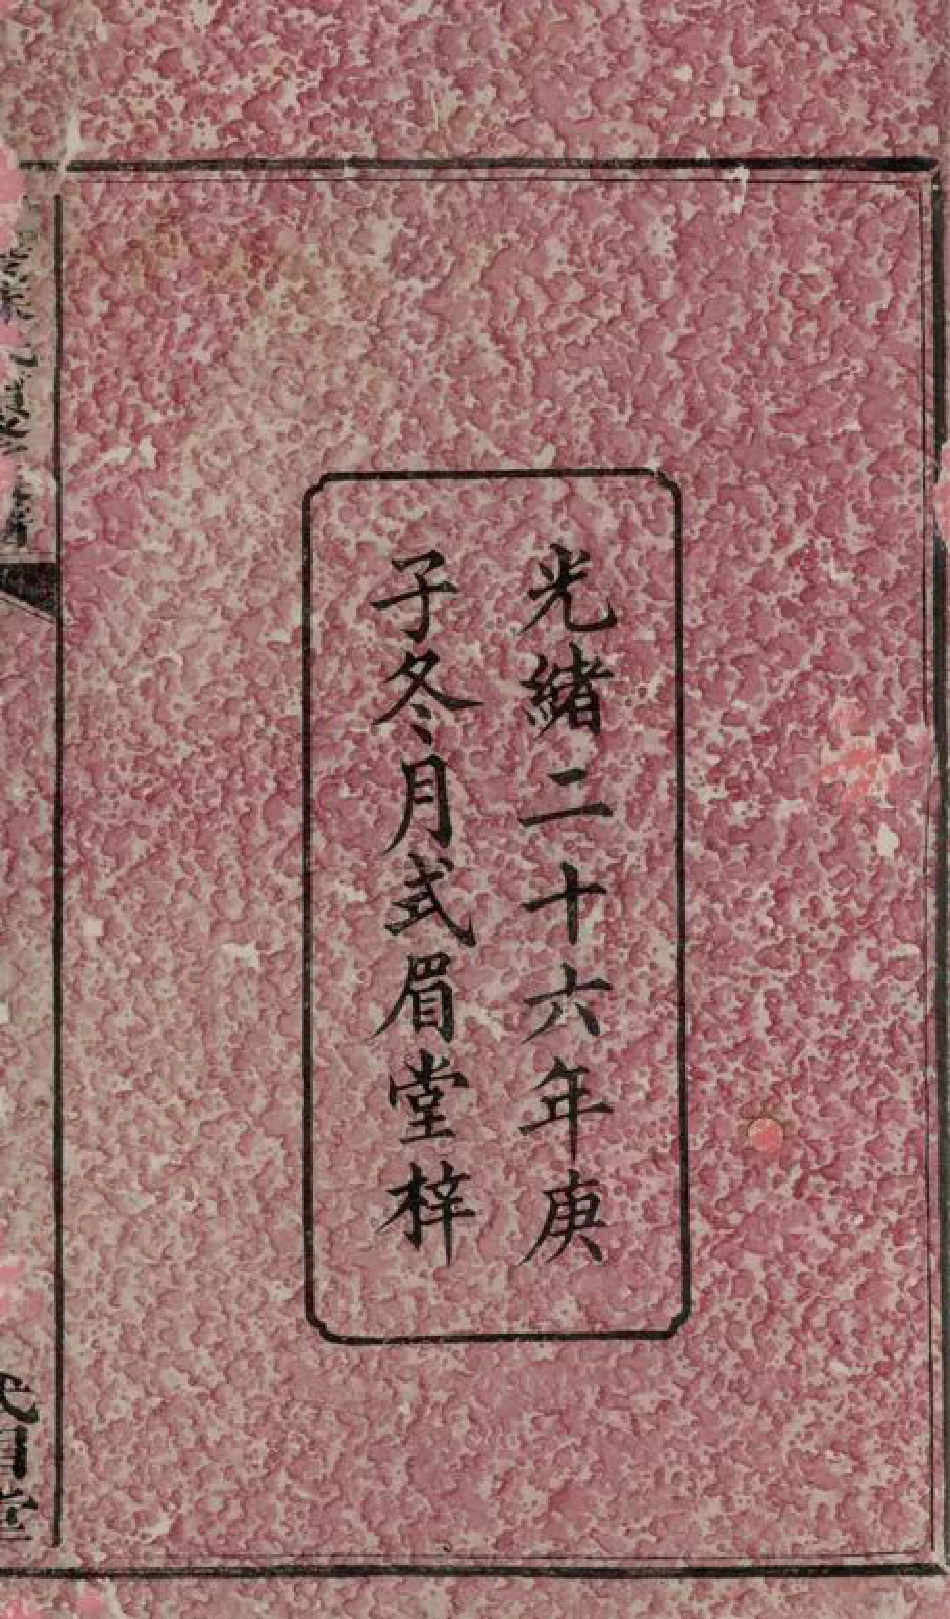 光緒二十六年庚
子冬月式眉堂梓